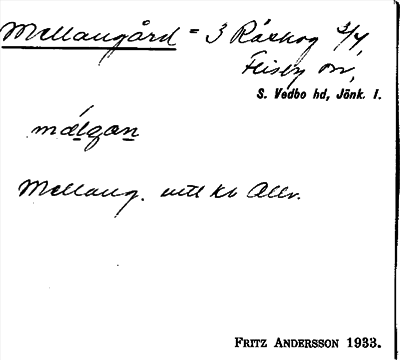 Mellangård = 3 Råskog 3/4,
Flisby sn,
S. Vedbo hd, Jönk. l.
mælgan
Mellang. utt kv Allv.
FRITZ ANDERSSON 1933.